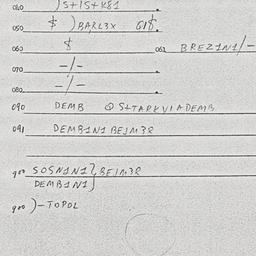 040 )S+IS+K81
050 $ )BARL3X GI$.
060 $ 061 BREZ1N1/-
070 -/-
080 -/-
090 DEMB @ S+TARKVIADEMB
091 DEMB1N1 BEJM3R
900 SOSN1N1 } BEJM3R
DEMB1N1
900 )-TOPOL